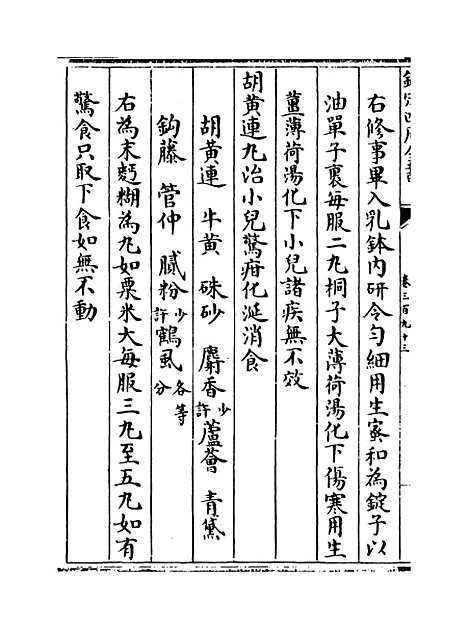 欽定四庫全書
卷三百九十三
右修事畢入乳鉢内研令勻細用生宻和為錠子以
油單子裏每服二九桐子大薄荷湯化下傷寒用生
薑薄荷湯化下小兒諸疾無不效
胡黄連九治小兒驚疳化涎消食
胡黄連 牛黄 硃砂 麝香少許 蘆薈 青黛
鈎藤 管仲 膩粉少許 鶴虱各等分
右為末麪糊為九如粟米大每服三九至五九如有
驚食只取下食如無不動